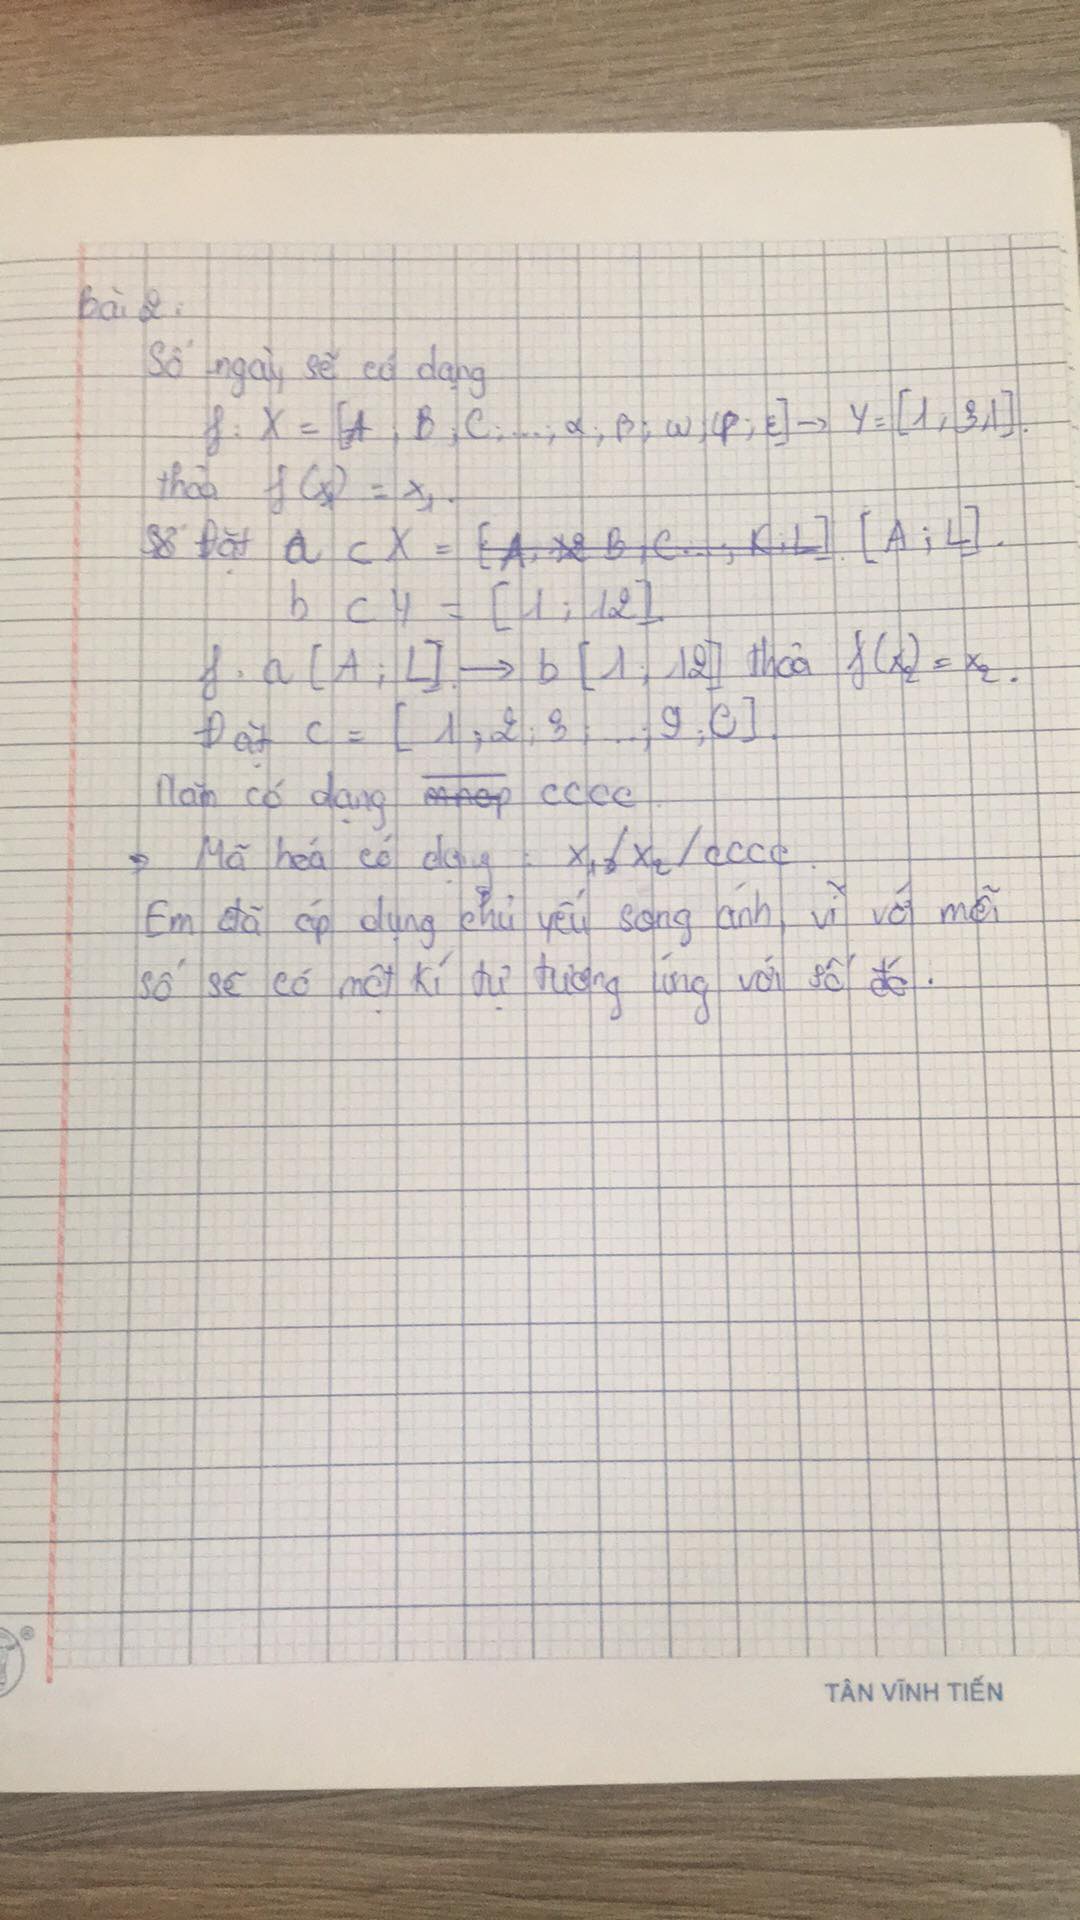 Bài 2:
Số ngày sẽ có dạng
f: X = [A; B; C; ...; α; β; ω; φ; ε] → Y = [1; 31].
thoả f(x₁) = x₁.
Đặt a ⊂ X = [A; L].
b ⊂ Y = [1; 12]
f: a [A; L] → b [1; 12] thoả f(x₂) = x₂.
Đặt c = [1; 2; 3; ...; 9; 0]
Năm có dạng cccc
→ Mã hoá có dạng: x₁/x₂/cccc.
Em đã áp dụng chủ yếu song ánh, vì với mỗi
số sẽ có một kí tự tương ứng với số đó.
TÂN VĨNH TIẾN